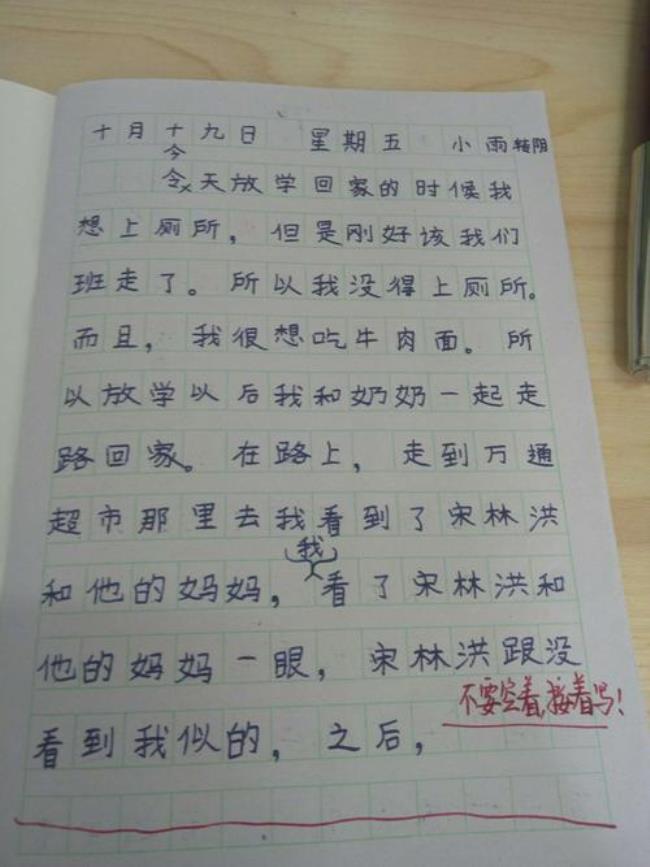 十月十九日 星期五 小雨转阴
今
令天放学回家的时候我
想上厕所，但是刚好该我们
班走了。所以我没得上厕所。
而且，我很想吃牛肉面。所
以放学以后我和奶奶一起走
路回家。在路上，走到万通
超市那里去我看到了宋林洪
我
和他的妈妈，看了宋林洪和
他的妈妈一眼，宋林洪跟没
不要空着，接着写！
看到我似的，之后，